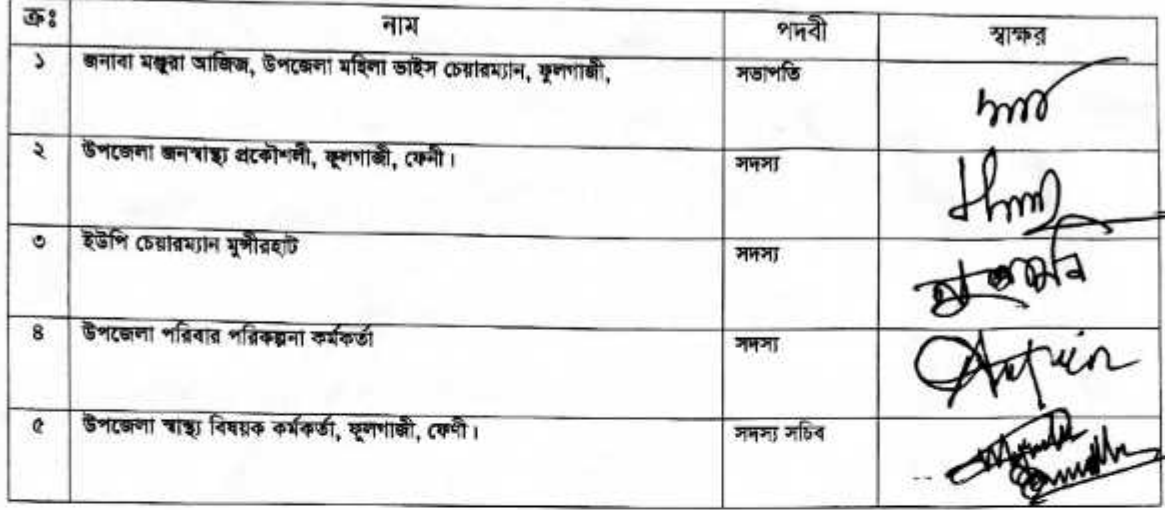 ক্রঃ নাম পদবী স্বাক্ষর
১ জনাবা মঞ্জুরা আজিজ, উপজেলা মহিলা ভাইস চেয়ারম্যান, ফুলগাজী, সভাপতি
২ উপজেলা জনস্বাস্থ্য প্রকৌশলী, ফুলগাজী, ফেনী। সদস্য
৩ ইউপি চেয়ারম্যান মুন্সীরহাট সদস্য
৪ উপজেলা পরিবার পরিকল্পনা কর্মকর্তা সদস্য
৫ উপজেলা স্বাস্থ্য বিষয়ক কর্মকর্তা, ফুলগাজী, ফেণী। সদস্য সচিব